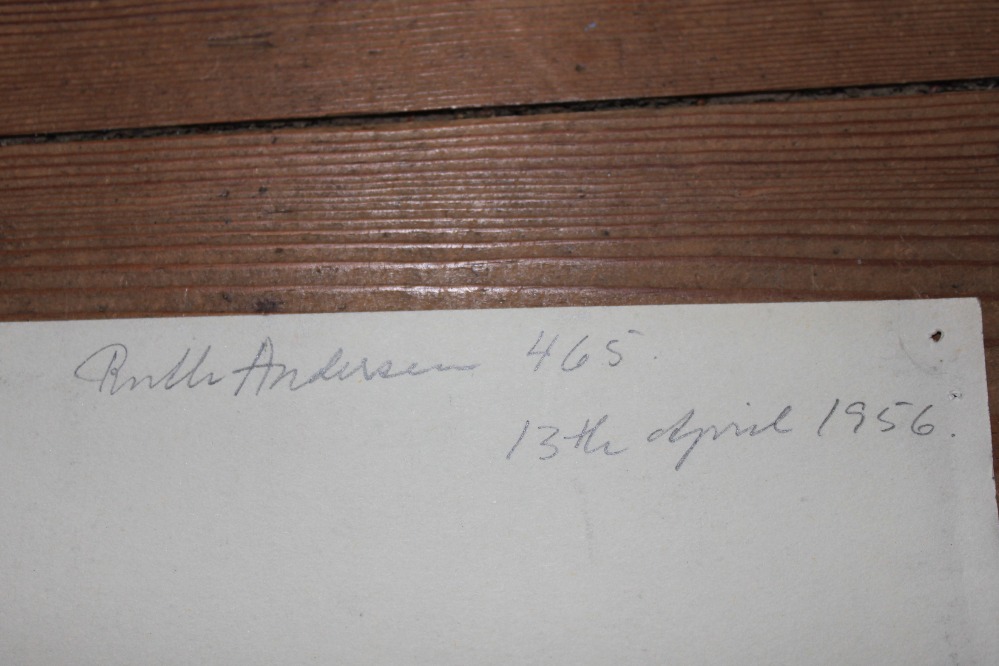 Ruth Andersen 465.
13th April 1956.